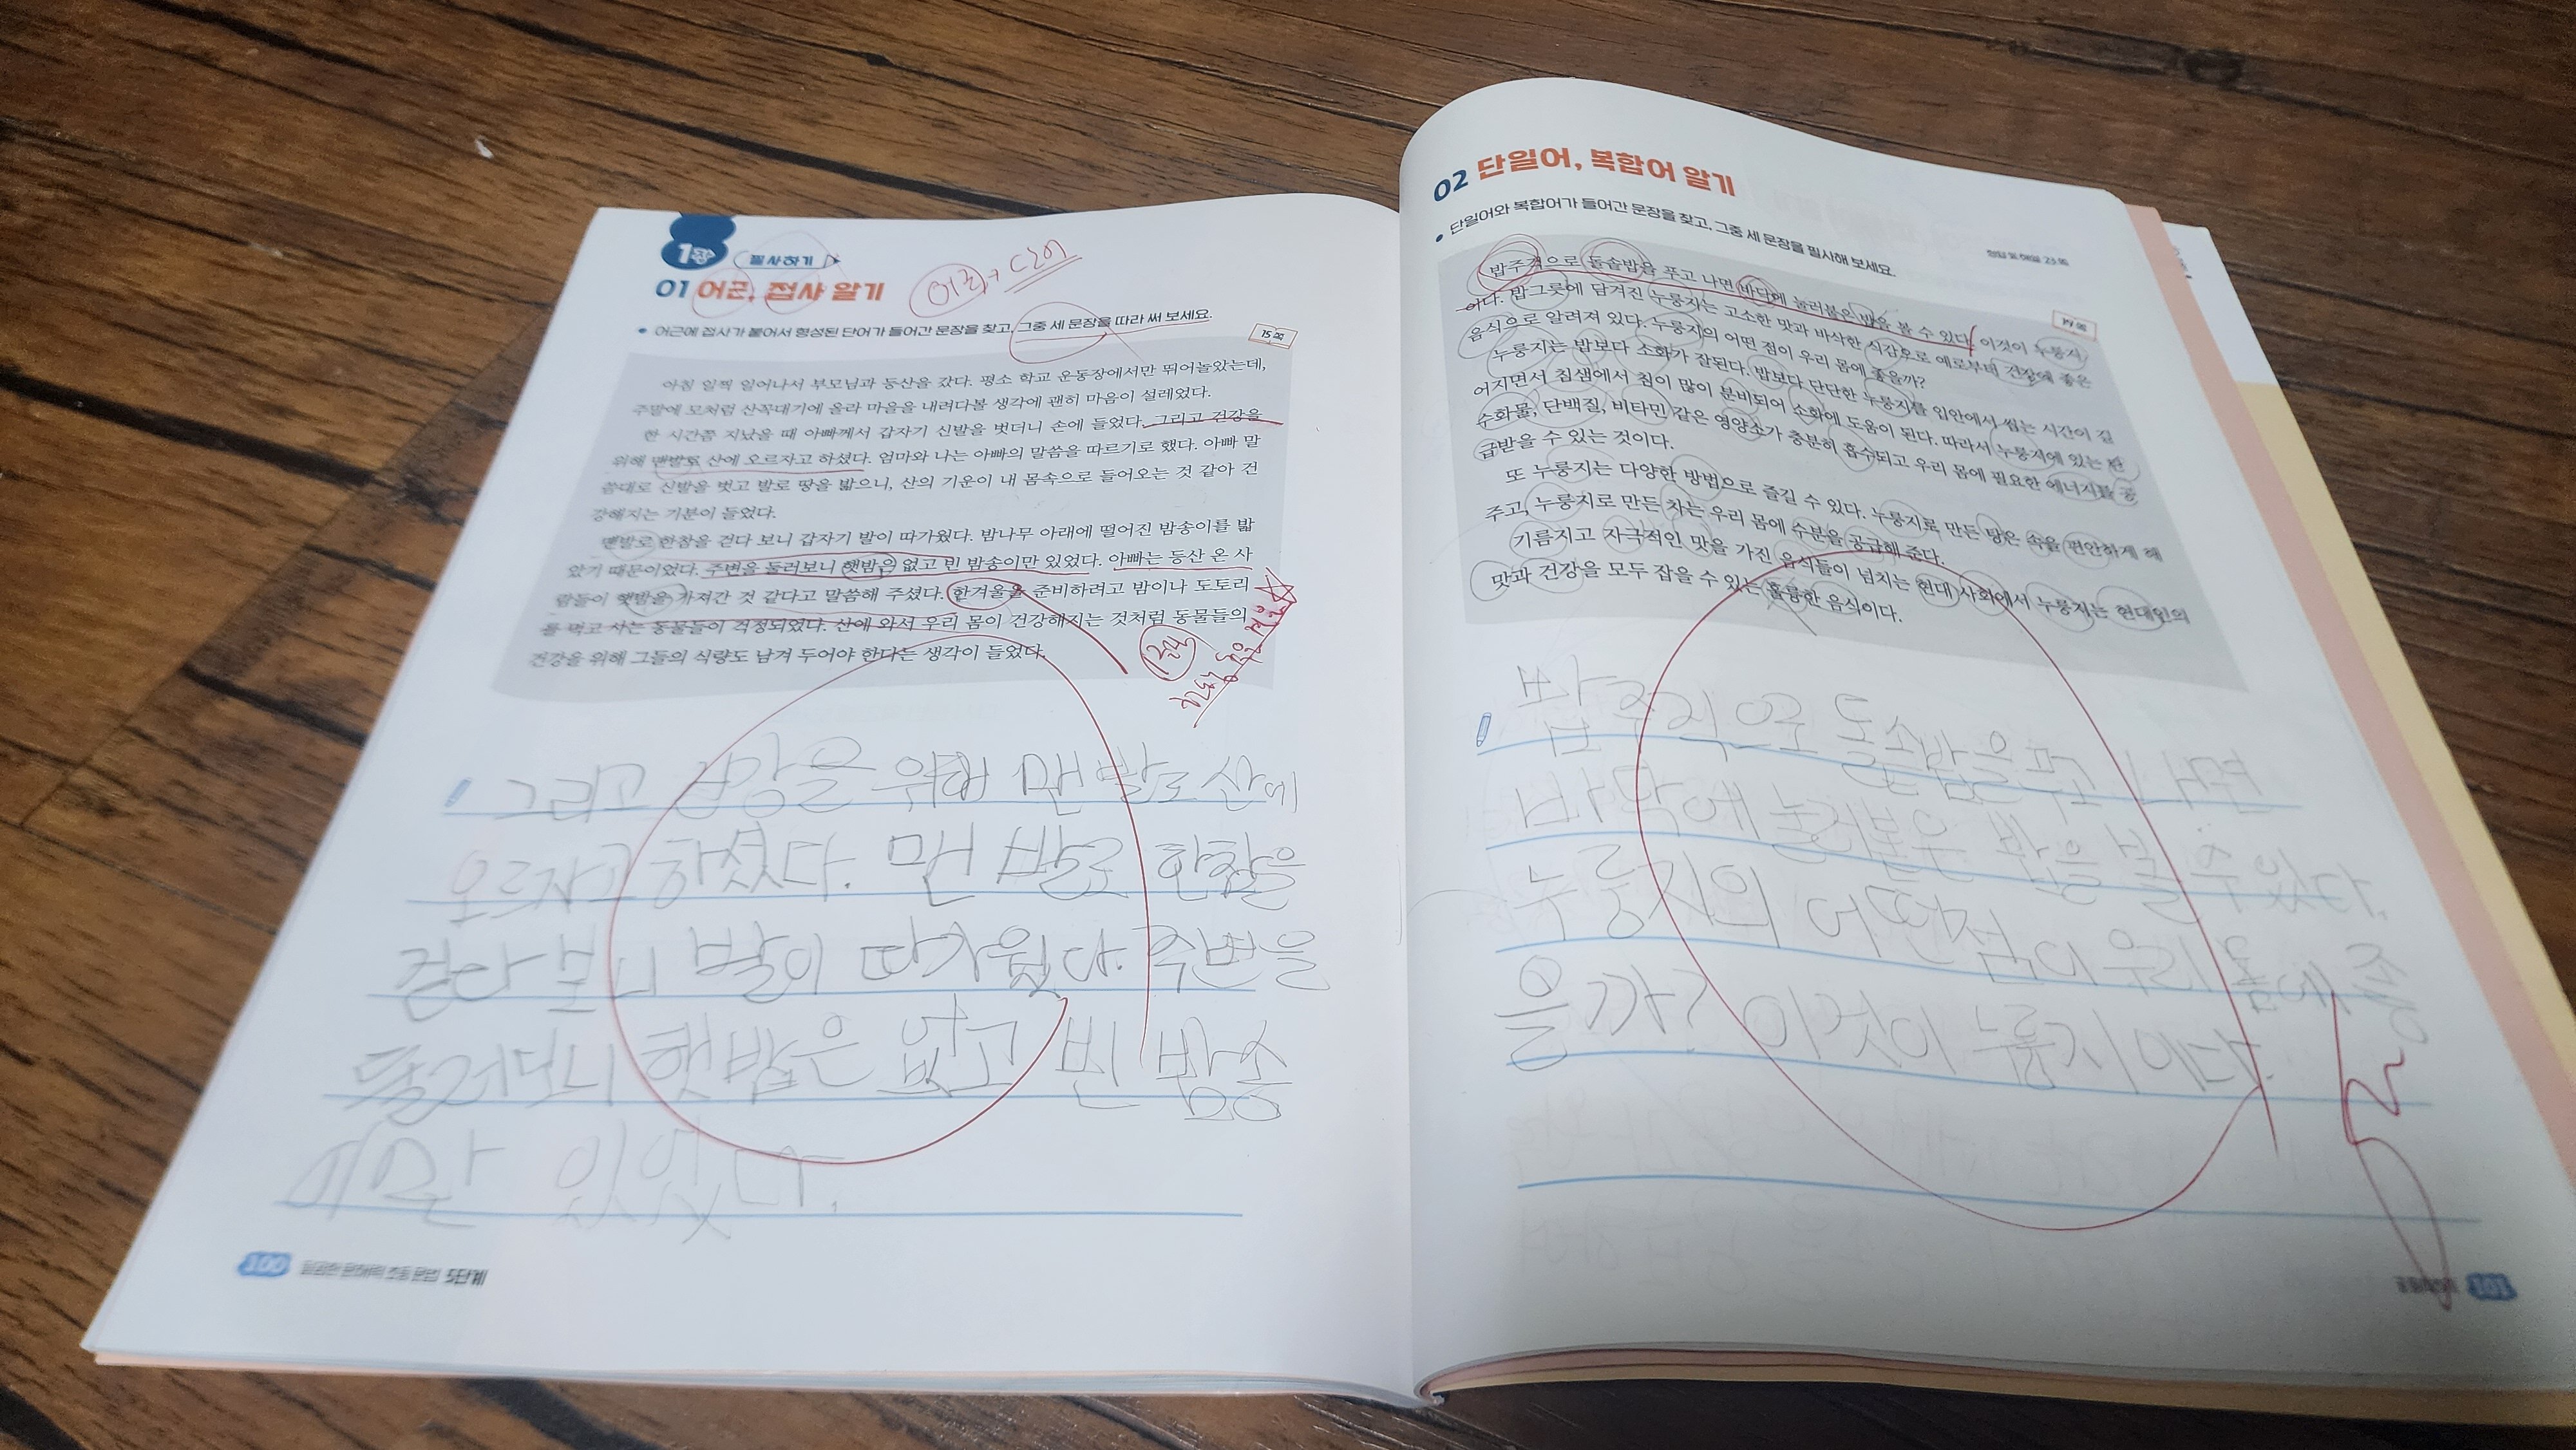 1장 필사하기
어근 + 단어
01 어근, 접사 알기
• 어근에 접사가 붙어서 형성된 단어가 들어간 문장을 찾고, 그중 세 문장을 따라 써 보세요.
15쪽
아침 일찍 일어나서 부모님과 등산을 갔다. 평소 학교 운동장에서만 뛰어놀았는데,
주말에 모처럼 산꼭대기에 올라 마을을 내려다볼 생각에 괜히 마음이 설레었다.
한 시간쯤 지났을 때 아빠께서 갑자기 신발을 벗더니 손에 들었다. 그리고 건강을
위해 맨발로 산에 오르자고 하셨다. 엄마와 나는 아빠의 말씀을 따르기로 했다. 아빠 말
씀대로 신발을 벗고 발로 땅을 밟으니, 산의 기운이 내 몸속으로 들어오는 것 같아 건
강해지는 기분이 들었다.
맨발로 한참을 걷다 보니 갑자기 발이 따가웠다. 밤나무 아래에 떨어진 밤송이를 밟
았기 때문이었다. 주변을 둘러보니 햇밤은 없고 빈 밤송이만 있었다. 아빠는 등산 온 사
람들이 햇밤을 가져간 것 같다고 말씀해 주셨다. 한겨울을 준비하려고 밤이나 도토리
를 먹고 사는 동물들이 걱정되었다. 산에 와서 우리 몸이 건강해지는 것처럼 동물들의
건강을 위해 그들의 식량도 남겨 두어야 한다는 생각이 들었다.
그리고 건강을 위해 맨발로 산에
오르자고 하셨다. 맨 발로 한참을
걷다 보니 발이 따가웠다. 주변을
둘러보니 햇밤은 없고 빈 밤송
이만 있었다.
100 초등 문법 5단계
02 단일어, 복합어 알기
• 단일어와 복합어가 들어간 문장을 찾고, 그중 세 문장을 필사해 보세요.
정답 및 해설 23쪽
밥주걱으로 돌솥밥을 푸고 나면 바닥에 눌러붙은 밥을 볼 수 있다. 이것이 누룽지
이다. 밥그릇에 담겨진 누룽지는 고소한 맛과 바삭한 식감으로 예로부터 건강에 좋은
음식으로 알려져 있다. 누룽지의 어떤 점이 우리 몸에 좋을까?
누룽지는 밥보다 소화가 잘된다. 밥보다 단단한 누룽지를 입안에서 씹는 시간이 길
어지면서 침샘에서 침이 많이 분비되어 소화에 도움이 된다. 따라서 누룽지에 있는 탄
수화물, 단백질, 비타민 같은 영양소가 충분히 흡수되고 우리 몸에 필요한 에너지를 공
급받을 수 있는 것이다.
또 누룽지는 다양한 방법으로 즐길 수 있다. 누룽지로 만든 탕은 속을 편안하게 해
주고, 누룽지로 만든 차는 우리 몸에 수분을 공급해 준다.
기름지고 자극적인 맛을 가진 음식들이 넘치는 현대 사회에서 누룽지는 현대인의
맛과 건강을 모두 잡을 수 있는 훌륭한 음식이다.
밥주걱으로 돌솥밥을 푸고 나면
바닥에 눌러붙은 밥을 볼 수 있다.
누룽지의 어떤 점이 우리 몸에 좋
을까? 이것이 누룽지이다.
101